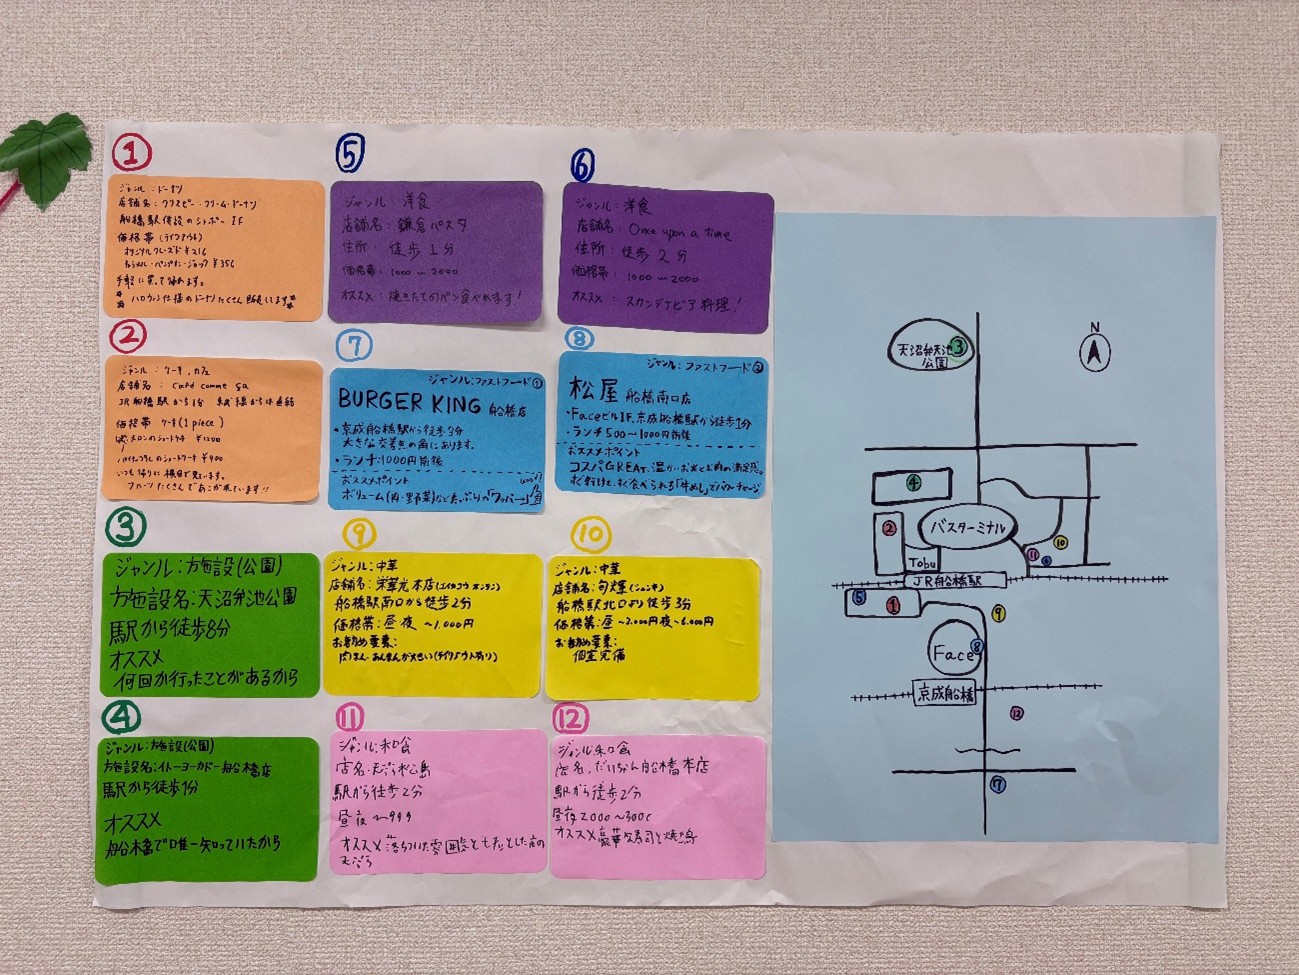 ①
ジャンル:ドーナツ
店舗名:クリスピー・クリーム・ドーナツ
船橋駅併設のシャポー1F
価格帯(テイクアウト)
オリジナルグレーズド¥216
¥356
手軽に買って帰れます。
ハロウィン仕様のドーナツたくさん販売してます
②
ジャンル:ケーキ,カフェ
店舗名:café comme ça
JR船橋駅から1分
価格帯 ケーキ(1 piece)
メロンのショートケーキ ¥1200
のショートケーキ¥900
いつも帰りに横目で見ています。
フルーツたくさんであこがれています!!
③
ジャンル:施設(公園)
施設名:天沼弁池公園
駅から徒歩8分
オススメ
何回か行ったことがあるから
④
ジャンル:施設(公園)
施設名:イトーヨーカドー船橋店
駅から徒歩1分
オススメ
船橋で唯一知っていたから
⑤
ジャンル:洋食
店舗名:鎌倉パスタ
住所:徒歩1分
価格帯:1000〜2000
オススメ:焼きたてのパン食べれます!
⑥
ジャンル:洋食
店舗名:Once upon a time
住所:徒歩2分
価格帯:1000〜2000
オススメ:スカンデナビア料理!
⑦
ジャンル:ファストフード①
BURGER KING 船橋店
・京成船橋駅から徒歩3分
大きな交差点の角にあります。
・ランチ:1000円前後
おススメポイント
ボリューム(肉・野菜)などたっぷりの「ワッパー」
⑧
ジャンル:ファストフード②
松屋 船橋南口店
・Faceビル1F、京成船橋駅から徒歩1分
・ランチ500〜1000円前後
おススメポイント
コスパGREAT、温かいお米とお肉の満足感。
すぐ行けて、すぐ食べられる「牛めし」でパワーチャージ
⑨
ジャンル:中華
店舗名:栄華光本店(エイカコウ ホンテン)
船橋駅南口から徒歩2分
価格帯:昼夜 〜1.000円
お勧め要素:
肉まん あんまんが大きい(テイクアウト有り)
⑩
ジャンル:中華
店舗名:旬輝(シュンキ)
船橋駅北口より徒歩3分
価格帯:昼〜2.000円夜〜6.000円
お勧め要素:
個室完備
⑪
ジャンル:和食
店名:天ぷら松島
駅から徒歩2分
昼夜〜999
オススメ 落ちついた雰囲気と した衣の
天ぷら
⑫
ジャンル:和食
店名:だいちゃん船橋本店
駅から徒歩2分
昼夜2000〜3000
オススメ豪華な寿司と焼鳥
天沼弁天池③
公園
N
④
②
バスターミナル
⑩
⑪
⑥
Tobu
JR船橋駅
⑤
①
⑨
⑧
Face
京成船橋
⑫
⑦